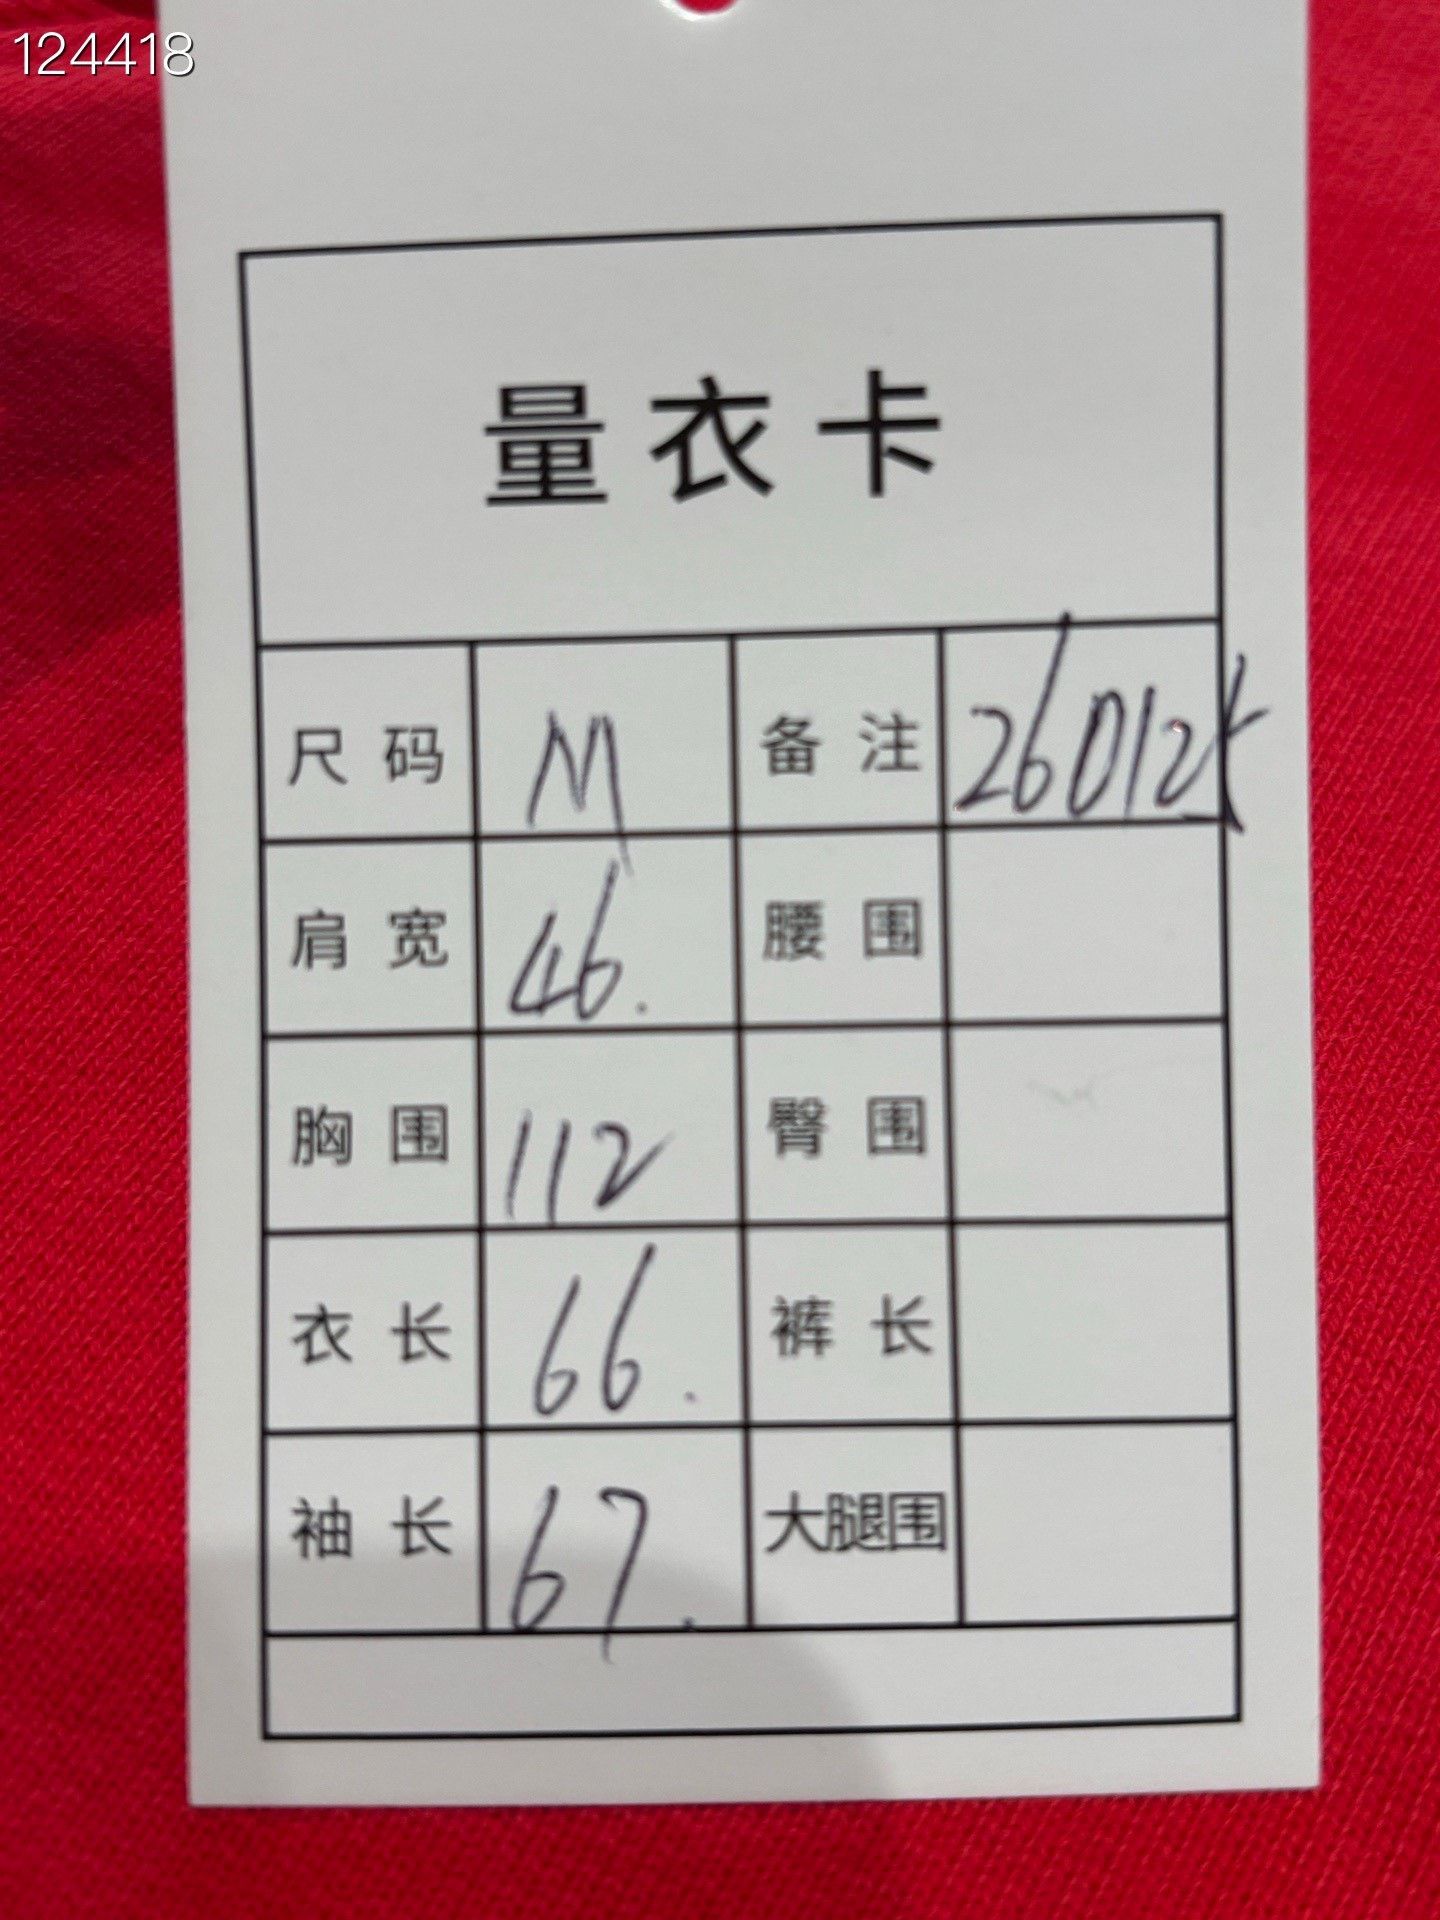 124418
量衣卡
尺码 M 备注 26012
肩宽 46. 腰围
胸围 112 臀围
衣长 66. 裤长
袖长 67. 大腿围